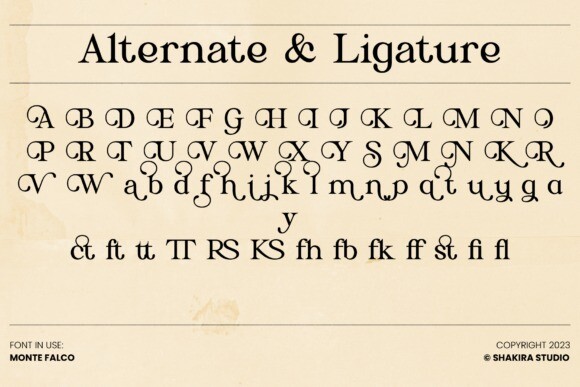 Alternate & Ligature
A B D E F G H I J K L M N O
P R T U V W X Y S M N K R
V W a b d f h i j k l m n p q t u y g a
y
ct ft tt TT RS KS fh fb fk ff st fi fl
FONT IN USE:
MONTE FALCO
COPYRIGHT 2023
© SHAKIRA STUDIO